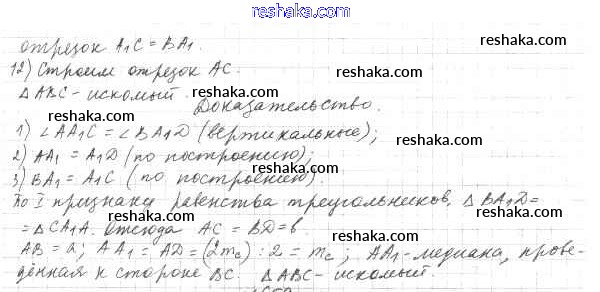 reshaka.com
отрезок A₁C = BA₁.
reshaka.com
12) Строим отрезок AC.
reshaka.com
△ABC - искомый.
reshaka.com
Доказательство.
1) ∠AA₁C = ∠BA₁D (вертикальные);
reshaka.com
2) AA₁ = A₁D (по построению);
reshaka.com
3) BA₁ = A₁C (по построению).
reshaka.com
По I признаку равенства треугольников, △BA₁D =
reshaka.com
= △CA₁A. Отсюда AC = BD = b.
reshaka.com
AB = a; AA₁ = AD = (2mc) : 2 = mc; AA₁ - медиана, прове-
дённая к стороне BC. △ABC - искомый.
reshaka.com